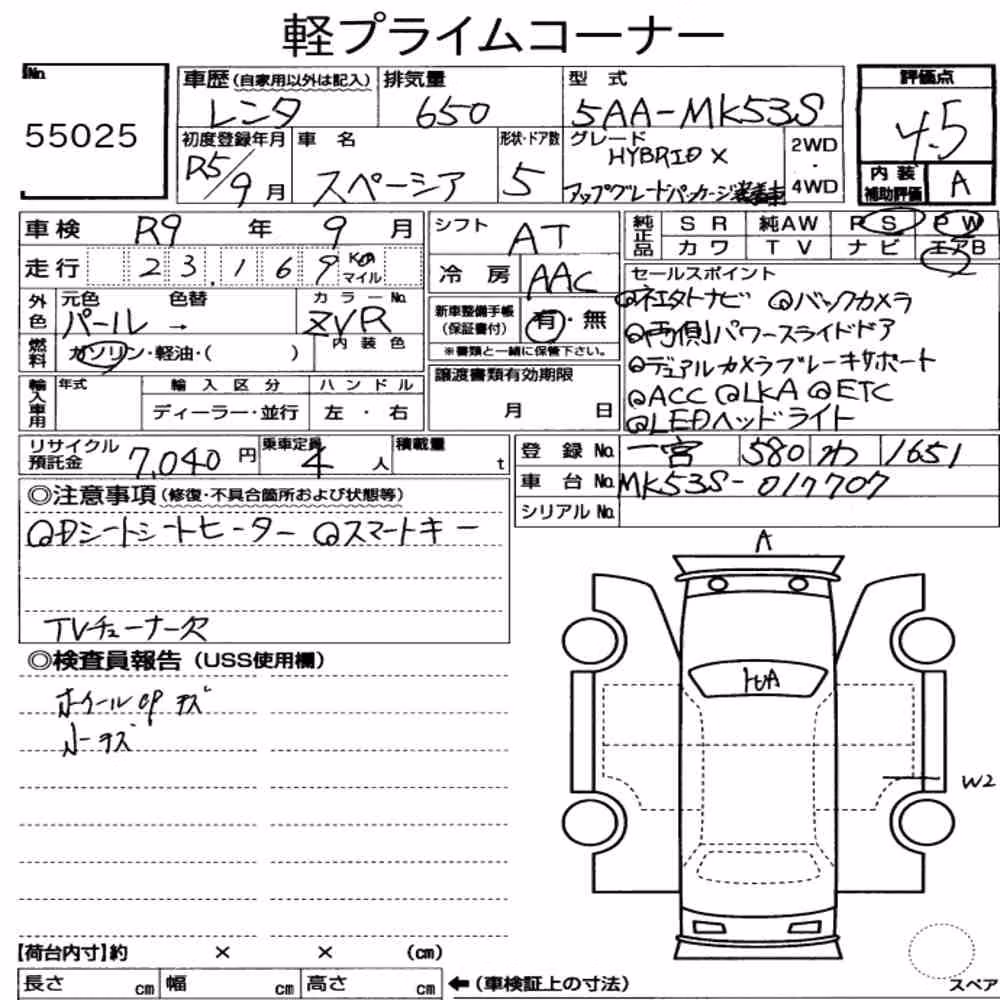 軽プライムコーナー
No.
55025
車歴(自家用以外は記入)
レンタ
排気量
650
型式
5AA-MK53S
評価点
4.5
初度登録年月
R5/9月
車名
スペーシア
形状・ドア数
5
グレード
HYBRID X
アップグレードパッケージ装着車
2WD・4WD
内装補助評価
A
車検 R9年 9月
走行 23,169 Km マイル
外色 元色 色替 カラーNo.
パール → ZVR
燃料 ガソリン・軽油・( ) 内装色
輸入車用 年式 輸入区分 ハンドル
ディーラー・並行 左・右
シフト AT
冷房 AAC
新車整備手帳(保証書付) 有・無
※書類と一緒に保管下さい。
譲渡書類有効期限
月 日
純正品 SR 純AW PS PW
カワ TV ナビ エアB
2
セールスポイント
◎ネエタトナビ ◎バックカメラ
◎両側パワースライドドア
◎デュアルカメラブレーキサポート
◎ACC ◎LKA ◎ETC
◎LEDヘッドライト
リサイクル預託金 7,040円
乗車定員 4人
積載量 t
登録No. 一宮 580 わ 1651
車台No. MK53S-017707
シリアルNo.
◎注意事項(修復・不具合箇所および状態等)
◎Dシートシートヒーター ◎スマートキー
TVチューナー欠
◎検査員報告(USS使用欄)
ホイールcpキズ
ルーキズ
A
トビA
W2
【荷台内寸】約 × × (cm)
長さ cm 幅 cm 高さ cm
←(車検証上の寸法)
スペア